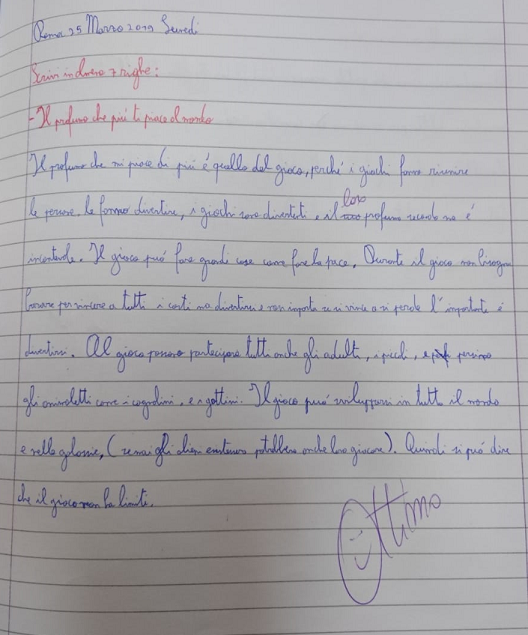 Roma 25 Marzo 2019 Lunedì
Scrivi in almeno 7 righe:
- Il profumo che più ti piace al mondo
Il profumo che mi piace di più è quello del gioco, perché i giochi fanno
le persone, le fanno divertire, i giochi sono divertenti e il loro profumo secondo me è
. Il gioco può fare grandi cose come fare la pace. Durante il gioco non bisogna
per vincere a tutti i costi ma divertirsi e non importa se si vince o si perde l'importante è
divertirsi. Al gioco possono partecipare tutti anche gli adulti, i piccoli, e persino
gli animaletti come i cagnolini, e i gattini. Il gioco può svilupparsi in tutto il mondo
e nella galassia, (se mai gli alieni esistessero potrebbero anche loro giocare). Quindi si può dire
che il gioco non ha limiti.
Ottimo